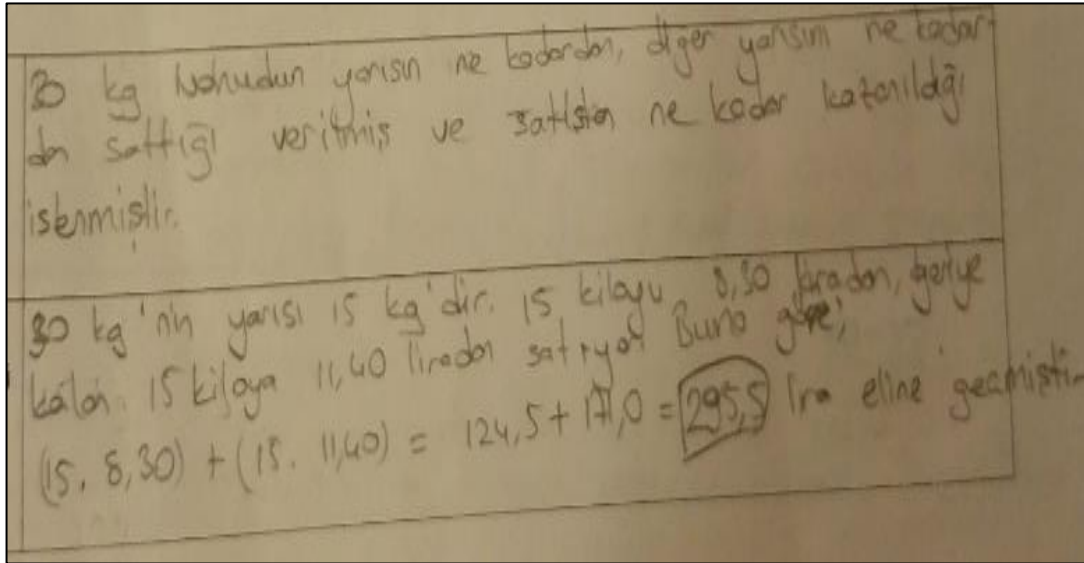 30 kg Nohudun yarısın ne kadardan, diğer yarısını ne kadar
dan sattığı verilmiş ve satıştan ne kadar kazanıldığı
istenmiştir.
30 kg'nın yarısı 15 kg'dır. 15 kiloyu 8,30 liradan, geriye
kalan 15 kiloya 11,40 liradan satıyor Buna göre;
(15. 8,30) + (15. 11,40) = 124,5 + 171,0 = 295,5 lira eline geçmiştir